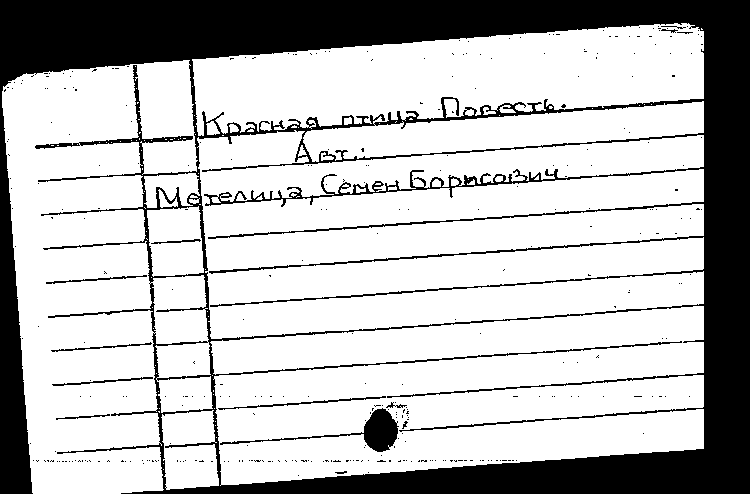 Красная птица. Повесть.
Авт.:
Метелица, Семен Борисович